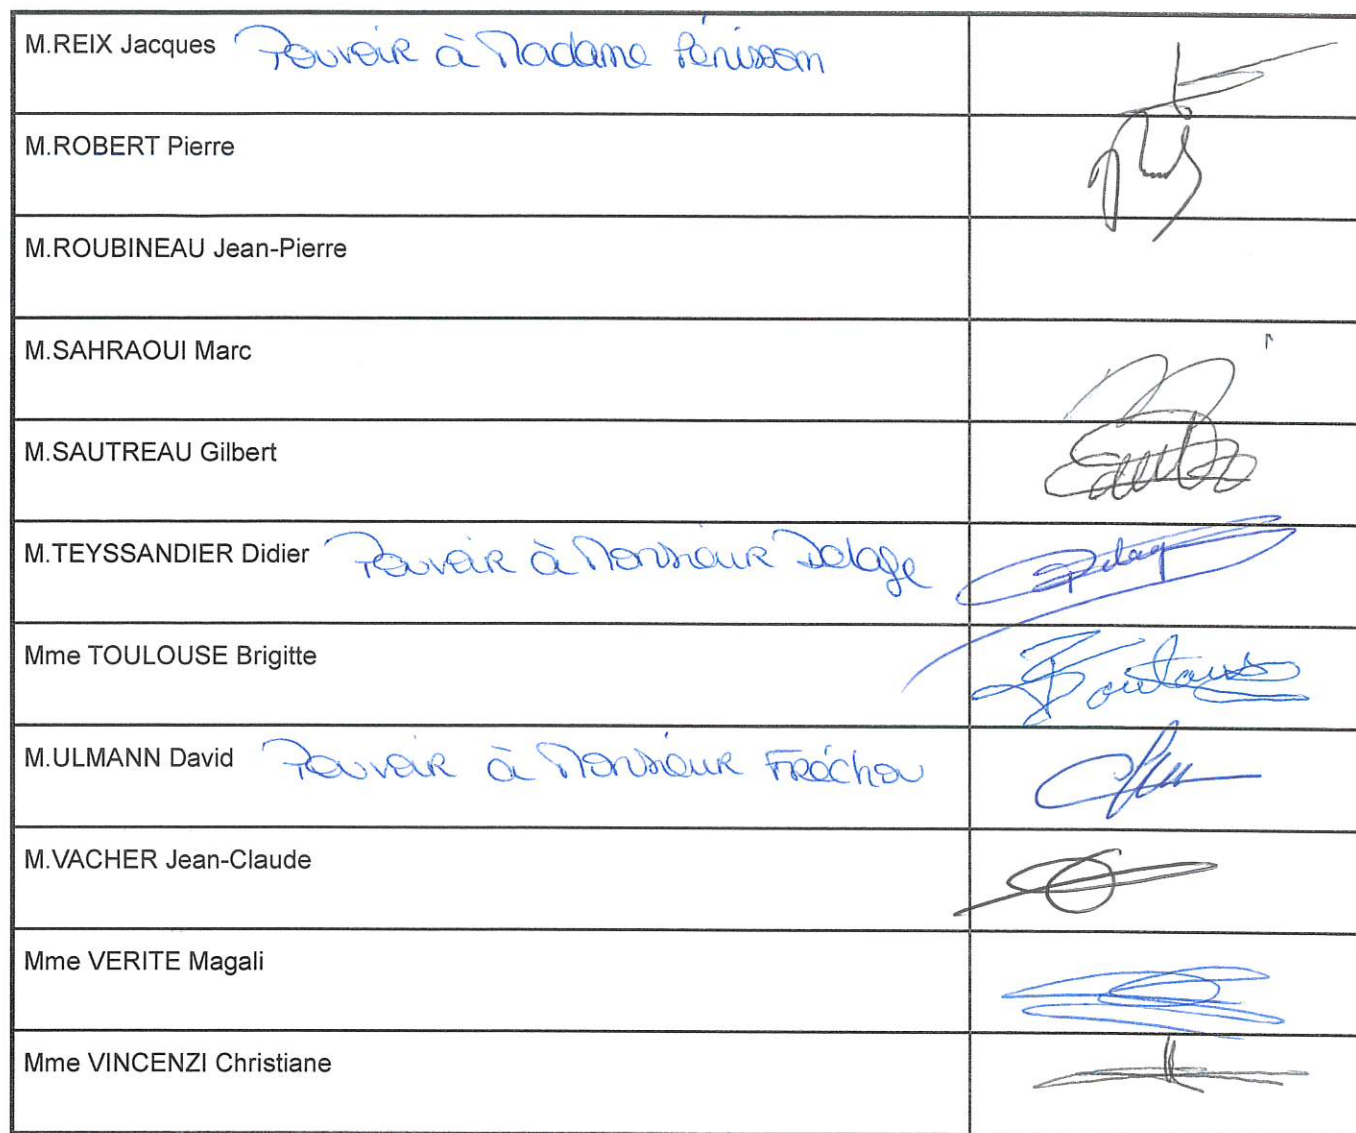 M.REIX Jacques Pouvoir à Madame Pénisson
M.ROBERT Pierre
M.ROUBINEAU Jean-Pierre
M.SAHRAOUI Marc
M.SAUTREAU Gilbert
M.TEYSSANDIER Didier Pouvoir à Monsieur Delage
Mme TOULOUSE Brigitte
M.ULMANN David Pouvoir à Monsieur Fréchou
M.VACHER Jean-Claude
Mme VERITE Magali
Mme VINCENZI Christiane